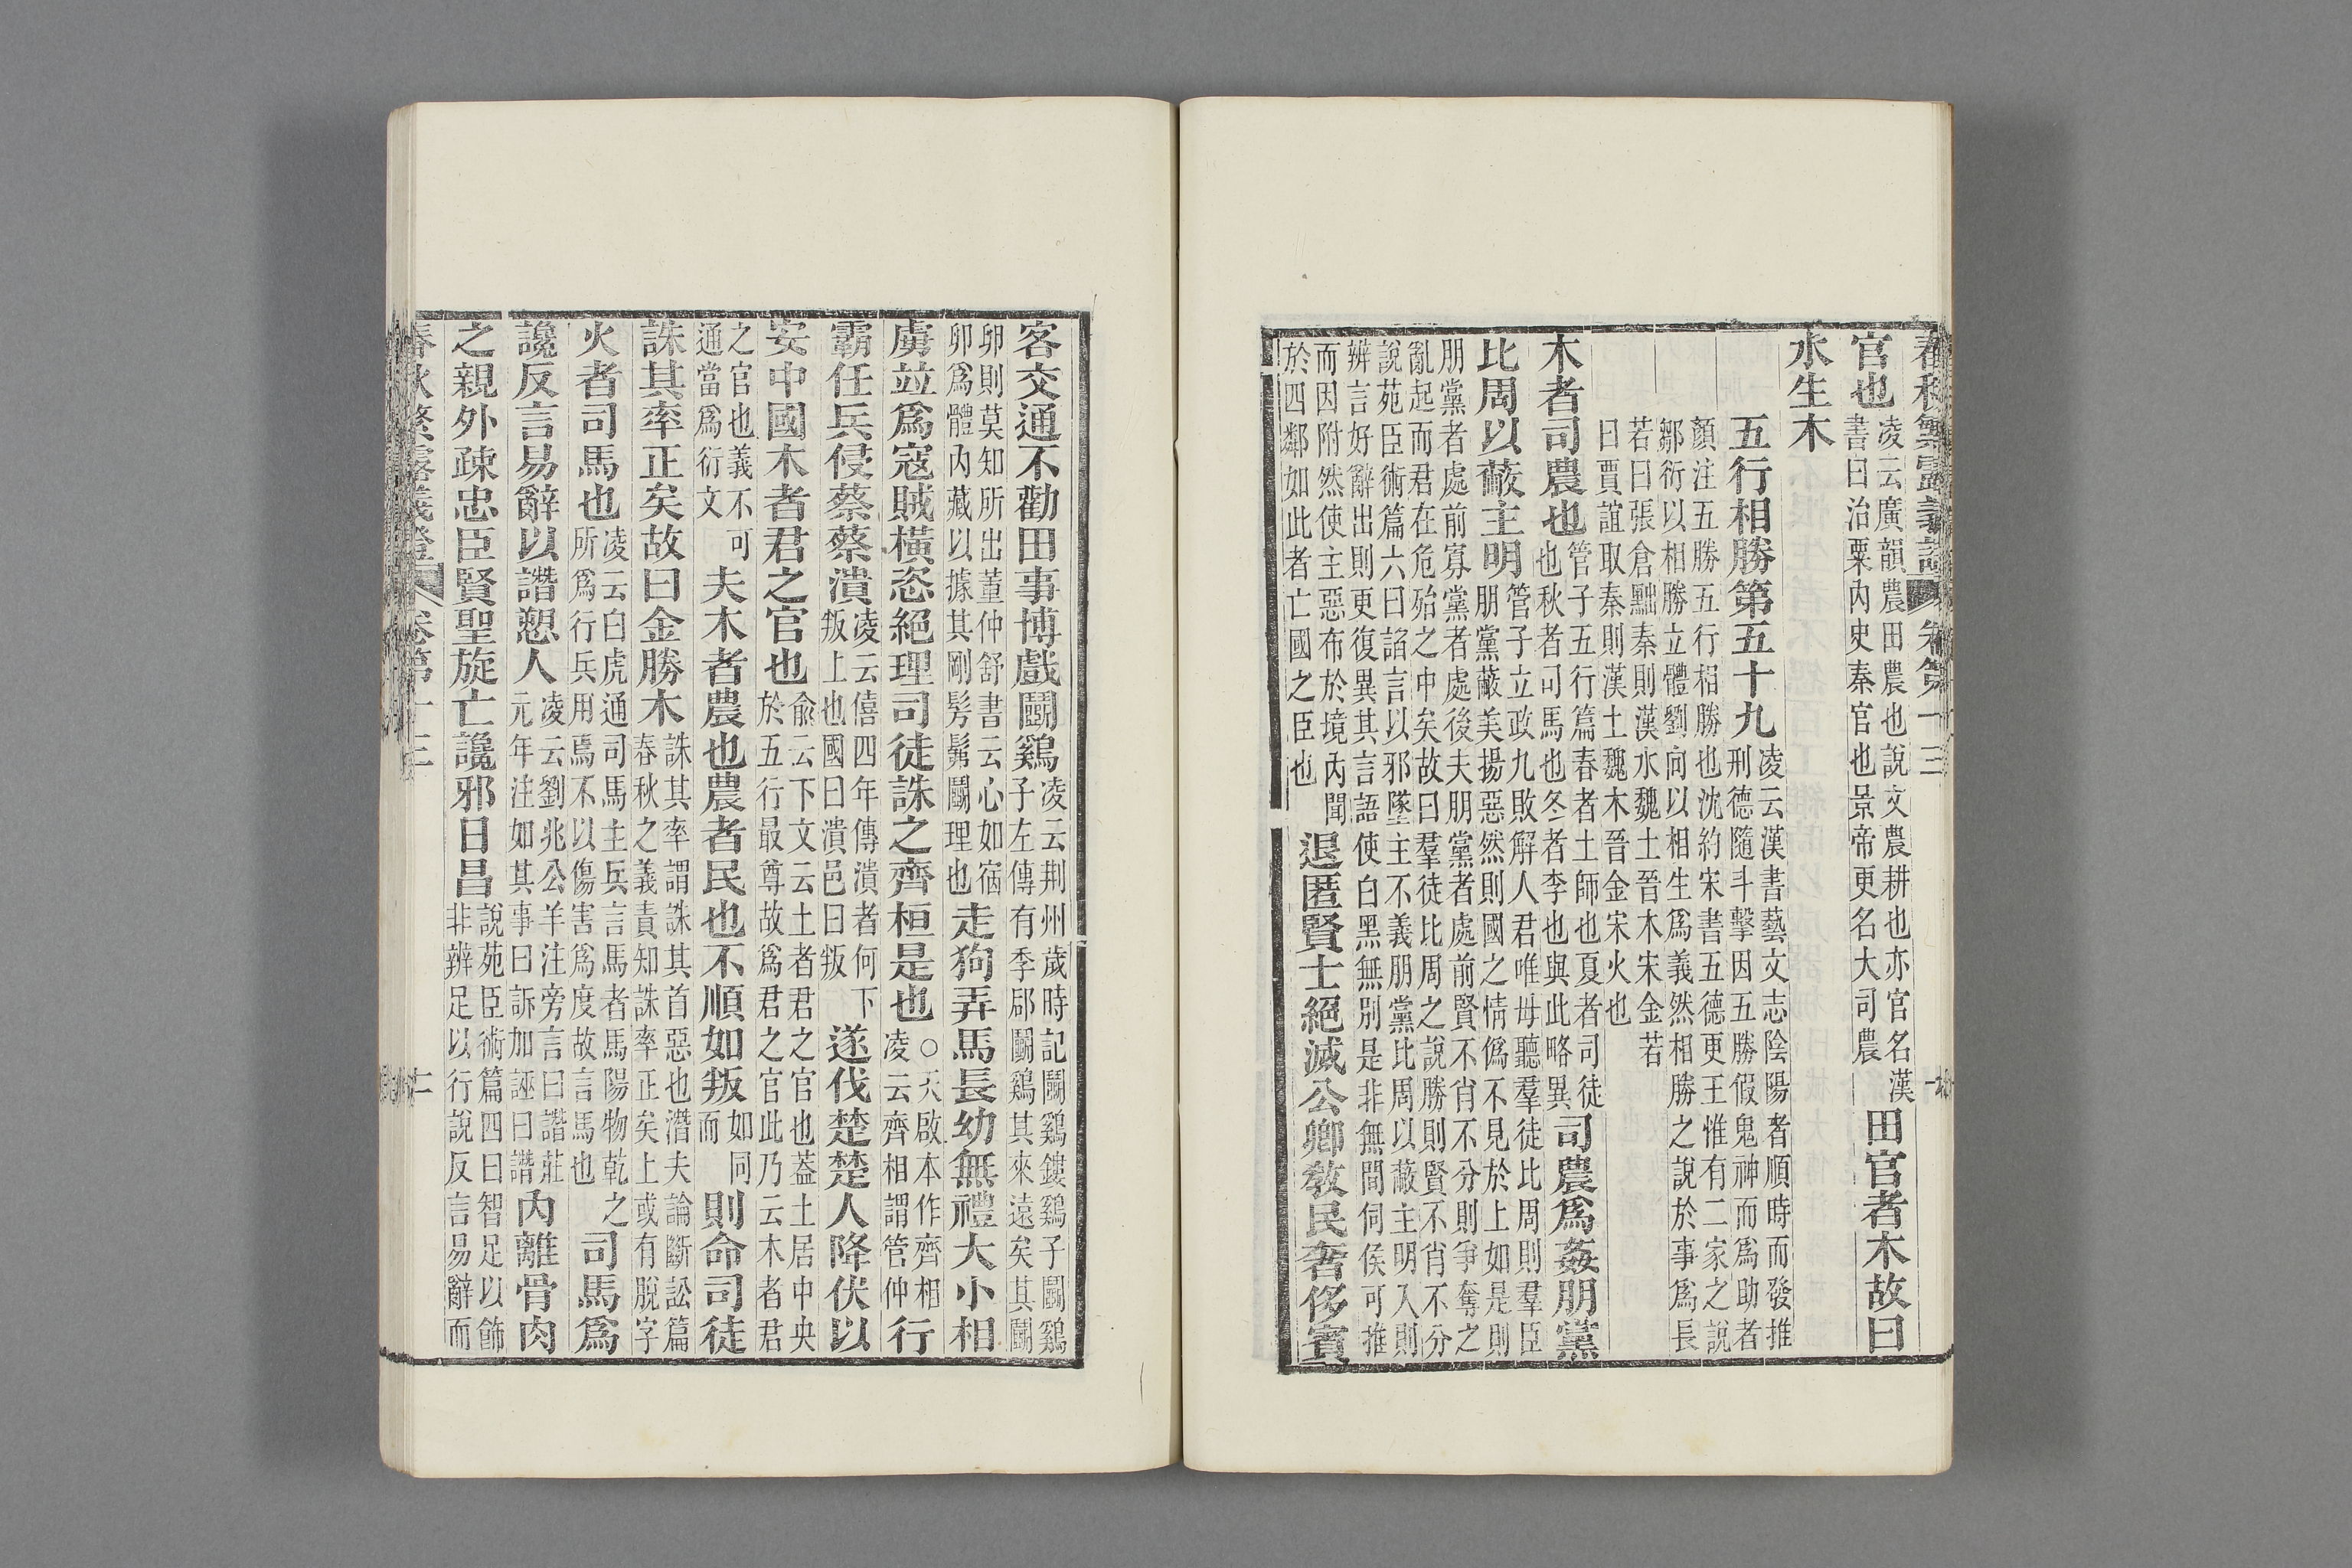 春秋繁露義證 卷第十三
官也凌云廣韻農田農也說文農耕也亦官名漢書曰治粟內史秦官也景帝更名大司農田官者木故曰
水生木
五行相勝第五十九凌云漢書藝文志陰陽者順時而發推刑德隨斗擊因五勝假鬼神而爲助者
顏注五勝五行相勝也沈約宋書五德更王惟有二家之說
鄒衍以相勝立體劉向以相生爲義然相勝之說於事爲長
若曰張倉黜秦則漢水魏土晉木宋金若
曰賈誼取秦則漢土魏木晉金宋火也
木者司農也管子五行篇春者土師也夏者司徒也秋者司馬也冬者李也與此略異司農爲姦朋黨
比周以蔽主明管子立政九敗解人君唯毋聽羣徒比周則羣臣朋黨蔽美揚惡然則國之情僞不見於上如是則
朋黨者處前寡黨者處後夫朋黨者處前賢不肖不分則爭奪之
亂起而君在危殆之中矣故曰羣徒比周之說勝則賢不肖不分
說苑臣術篇六曰諂言以邪墜主不義朋黨比周以蔽主明入則
辨言好辭出則更復異其言語使白黑無別是非無間伺侯可推
而因附然使主惡布於境內聞於四鄰如此者亡國之臣也退匿賢士絕滅公卿敎民奢侈賓
客交通不勸田事博戲鬭鷄凌云荆州歲時記鬭鷄鏤鷄子鬭鷄子左傳有季郈鬭鷄其來遠矣其鬭
卵則莫知所出董仲舒書云心如宿卵爲體內藏以據其剛髣髴鬭理也走狗弄馬長幼無禮大小相
虜竝爲寇賊橫恣絕理司徒誅之齊桓是也○天啟本作齊相凌云齊相謂管仲行
霸任兵侵蔡蔡潰凌云僖四年傳潰者何下叛上也國曰潰邑曰叛遂伐楚楚人降伏以
安中國木者君之官也俞云下文云土者君之官也蓋土居中央於五行最尊故爲君之官此乃云木者君
之官也義不可通當爲衍文夫木者農也農者民也不順如叛如同而則命司徒
誅其率正矣故曰金勝木誅其率謂誅其首惡也潛夫論斷訟篇春秋之義責知誅率正矣上或有脫字
火者司馬也凌云白虎通司馬主兵言馬者馬陽物乾之所爲行兵用焉不以傷害爲度故言馬也司馬爲
讒反言易辭以譖愬人凌云劉兆公羊注旁言曰譖莊元年注如其事曰訴加誣曰譖內離骨肉
之親外疎忠臣賢聖旋亡讒邪日昌說苑臣術篇四曰智足以飾非辨足以行說反言易辭而
春秋繁露義證 卷第十三